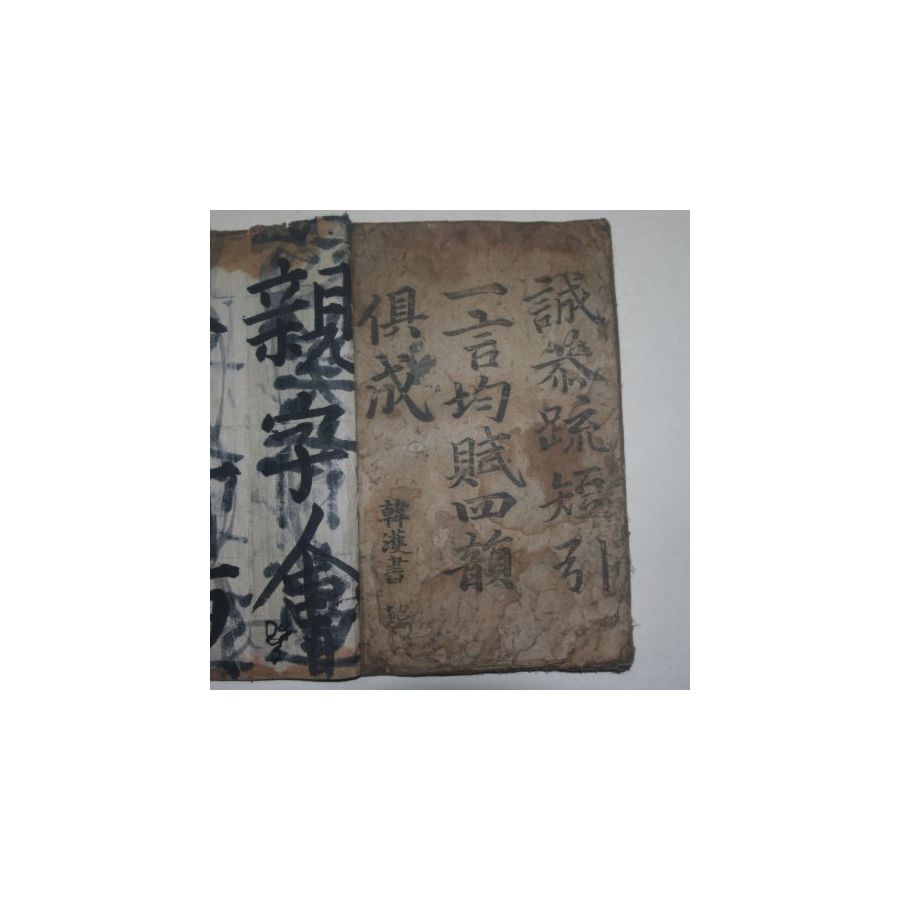 誠恭疏短引
一言均賦四韻
俱成
韓濩書
親字會